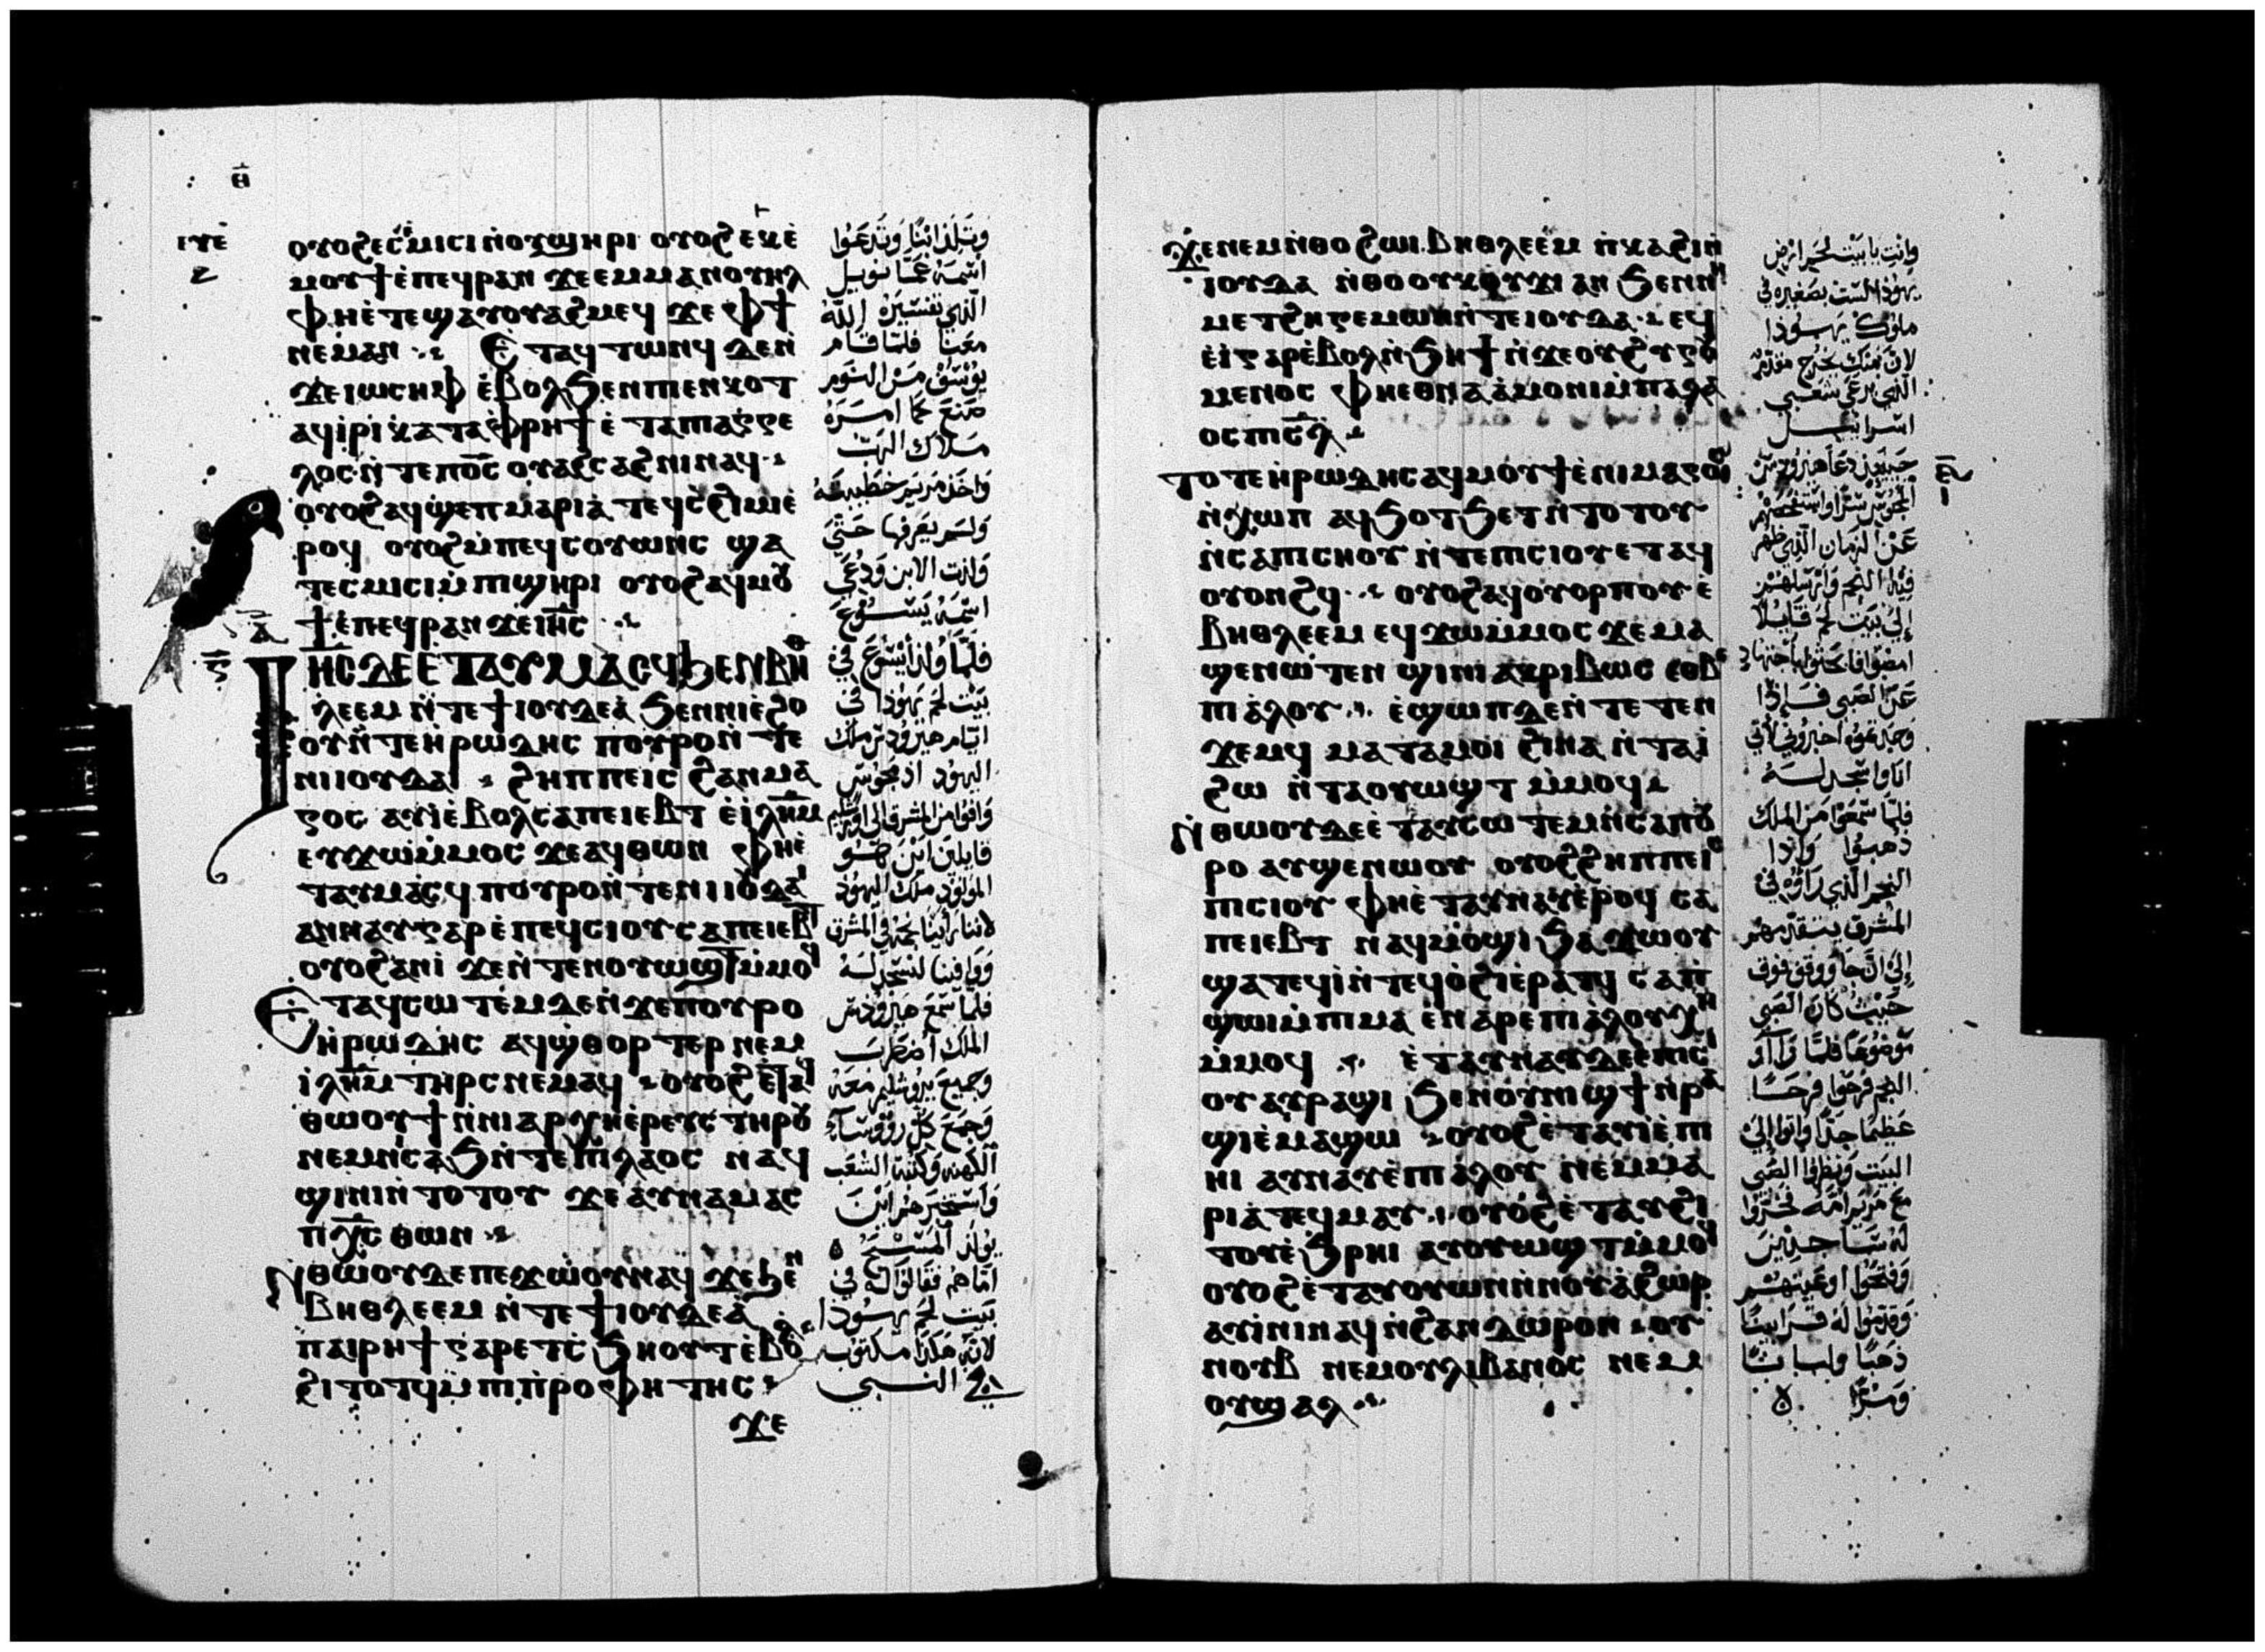 ⲑ̄
ⲟⲩⲟϩ ⲉⲥⲉ̀ⲙⲓⲥⲓ ⲛ̀ⲟⲩϣⲏⲣⲓ ⲟⲩⲟϩ ⲉⲩⲉ̀
ⲙⲟⲩϯ ⲉ̀ⲡⲉϥⲣⲁⲛ ϫⲉ ⲉⲙⲙⲁⲛⲟⲩⲏⲗ
ⲫⲏⲉ̀ⲧⲉϣⲁⲩⲟⲩⲁϩⲙⲉϥ ϫⲉ ⲫϯ
ⲛⲉⲙⲁⲛ ⲉ̀ⲧⲁϥⲧⲱⲛϥ ⲇⲉ ⲛ̀
ϫⲉ ⲓⲱⲥⲏⲫ ⲉ̀ⲃⲟⲗϧⲉⲛ ⲡⲓⲉⲛⲕⲟⲧ
ⲁϥⲓ̀ⲣⲓ ⲕⲁⲧⲁⲫⲣⲏϯ ⲉ̀ⲧⲁⲡⲓⲁⲅⲅⲉ
ⲗⲟⲥ ⲛ̀ⲧⲉ ⲡⲟ̅ⲥ̅ ⲟⲩⲁϩⲥⲁϩⲛⲓ ⲛⲁϥ
ⲟⲩⲟϩ ⲁϥϣⲉⲡ ⲙⲁⲣⲓⲁ̀ ⲧⲉϥⲥ̀ϩⲓⲙⲉ̀
ⲣⲟϥ ⲟⲩⲟϩ ⲙ̀ⲡⲉϥⲥⲟⲩⲱⲛⲥ ϣⲁ
ⲧⲉⲥⲙⲓⲥⲓ ⲙ̀ⲡⲓϣⲏⲣⲓ ⲟⲩⲟϩ ⲁϥⲙⲟⲩ
ϯ ⲉ̀ⲡⲉϥⲣⲁⲛ ϫⲉ ⲓⲏ̅ⲥ̅
ⲓⲏⲥ ⲇⲉ ⲉⲧⲁⲩⲙⲁⲥϥ ϧⲉⲛ ⲃⲏⲑ
ⲗⲉⲉⲙ ⲛ̀ⲧⲉ ϯⲓⲟⲩⲇⲉⲁ̀ ϧⲉⲛ ⲛⲓⲉϩⲟ
ⲟⲩ ⲛ̀ⲧⲉ ⲏ̀ⲣⲱⲇⲏⲥ ⲡⲟⲩⲣⲟ ⲛ̀ⲧⲉ
ⲛⲓⲓⲟⲩⲇⲁⲓ ϩⲏⲡⲡⲉ ⲓⲥ ϩⲁⲛⲙⲁ
ⲅⲟⲥ ⲁⲩⲓ̀ ⲉ̀ⲃⲟⲗ ⲥⲁⲡⲉⲓⲉⲃⲧ ⲉ̀ⲓⲗ̅ⲏ̅ⲙ̅
ⲉⲩϫⲱⲙ̀ⲙⲟⲥ ϫⲉ ⲁϥⲑⲱⲛ ⲫⲏⲉ̀
ⲧⲁⲩⲙⲁⲥϥ ⲡⲟⲩⲣⲟ ⲛ̀ⲧⲉ ⲛⲓⲓⲟⲩⲇⲁⲓ
ⲁⲛⲛⲁⲩ ⲅⲁⲣ ⲉ̀ⲡⲉϥⲥⲓⲟⲩ ⲥⲁⲡⲉⲓⲉⲃⲧ
ⲟⲩⲟϩ ⲁⲛⲓ̀ ϫⲉ ⲛ̀ⲧⲉⲛⲟⲩⲱϣⲧ ⲙ̀ⲙⲟϥ
ⲉ̀ⲧⲁϥⲥⲱⲧⲉⲙ ⲇⲉ ⲛ̀ϫⲉ ⲡⲟⲩⲣⲟ
ⲏ̀ⲣⲱⲇⲏⲥ ⲁϥϣ̀ⲑⲟⲣⲧⲉⲣ ⲛⲉⲙ
ⲓⲗ̅ⲏ̅ⲙ̅ ⲧⲏⲣⲥ ⲛⲉⲙⲁϥ ⲟⲩⲟϩ ⲉ̀ⲧⲁϥ
ⲑⲱⲟⲩϯ ⲛ̀ⲛⲓⲁⲣⲭⲏⲉ̀ⲣⲉⲩⲥ ⲧⲏⲣⲟⲩ
ⲛⲉⲙ ⲛⲓⲥⲁϧ ⲛ̀ⲧⲉ ⲡⲓⲗⲁⲟⲥ ⲛⲁϥ
ϣⲓⲛⲓ ⲛ̀ⲧⲟⲧⲟⲩ ϫⲉ ⲁⲩⲛⲁⲙⲁⲥ
ⲡⲭ̅ⲥ̅ ⲑⲱⲛ
ⲛ̀ⲑⲱⲟⲩ ⲇⲉ ⲡⲉϫⲱⲟⲩ ⲛⲁϥ ϫⲉ ϧⲉⲛ
ⲃⲏⲑⲗⲉⲉⲙ ⲛ̀ⲧⲉ ϯⲓⲟⲩⲇⲉⲁ̀
ⲡⲁⲓⲣⲏϯ ⲅⲁⲣ ⲉⲧⲥ̀ϧⲏⲟⲩⲧ ⲉ̀ⲃⲟⲗ
ϩⲓⲧⲟⲧϥ ⲙ̀ⲡⲓⲡ̀ⲣⲟⲫⲏⲧⲏⲥ
ϫⲉ
وتلد ابنا وتدعوا
اسمه عمانويل
الذي تفسيره الله
معنا فلما قام
يوسف من النوم
صنع كما امره
ملاك الرب
واخذ مريم خطيبته
ولم يعرفها حتي
ولدت الابن ودعي
اسمه يسوع
فلما ولد يسوع في
بيت لحم يهودا في
ايام هيرودس ملك
اليهود اذ مجوس
وافوا من المشرق الي اورشليم
قايلين اين هو
المولود ملك اليهود
لاننا راينا نجمه في المشرق
ووافينا لنسجد له
فلما سمع هيرودس
الملك اضطرب
وجميع يروشليم معه
وجمع كل رووساء
الكهنة وكتبة الشعب
واستخبرهم اين
يولد المسيح
اما هم فقالوا له في
بيت لحم يهودا
لانه هكذا مكتوب
في النبي
ϫⲉ ⲛⲉⲙ ⲛ̀ⲑⲟ ϩⲱⲓ ⲃⲏⲑⲗⲉⲉⲙ ⲡ̀ⲕⲁϩⲓ ⲛ̀
ⲓⲟⲩⲇⲁ ⲛ̀ⲑⲟ ⲟⲩⲕⲟⲩϫⲓ ⲁⲛ ϧⲉⲛ ⲛⲓ
ⲙⲉⲧϩⲏⲅⲉⲙⲱⲛ ⲛ̀ⲧⲉ ⲓⲟⲩⲇⲁ ⲉϥ
ⲉ̀ⲓ̀ ⲅⲁⲣ ⲉ̀ⲃⲟⲗ ⲛ̀ϧⲏϯ ⲛ̀ϫⲉ ⲟⲩϩⲩⲅⲟⲩ
ⲙⲉⲛⲟⲥ ⲫⲏⲉⲑⲛⲁⲁ̀ⲙⲟⲛⲓ ⲙ̀ⲡⲁⲗⲁ
ⲟⲥ ⲡⲓⲥ̅ⲗ̅
ⲧⲟⲧⲉ ⲏ̀ⲣⲱⲇⲏⲥ ⲁϥⲙⲟⲩϯ ⲉ̀ⲛⲓⲙⲁⲅⲟⲥ
ⲛ̀ⲭⲱⲡ ⲁϥϧⲟⲧϧⲉⲧ ⲛ̀ⲧⲟⲧⲟⲩ
ⲛ̀ⲥⲁ ⲡⲓⲥⲏⲟⲩ ⲛ̀ⲧⲉ ⲡⲓⲥⲓⲟⲩ ⲉⲧⲁϥ
ⲟⲩⲟⲛϩϥ ⲟⲩⲟϩ ⲁϥⲟⲩⲟⲣⲡⲟⲩ ⲉ̀
ⲃⲏⲑⲗⲉⲉⲙ ⲉϥϫⲱⲙ̀ⲙⲟⲥ ϫⲉ ⲙⲁ
ϣⲉⲛⲱⲧⲉⲛ ϣⲓⲛⲓ ⲁⲕⲣⲓⲃⲱⲥ ⲉⲑⲃⲉ
ⲡⲓⲁ̀ⲗⲟⲩ ⲉ̀ϣⲱⲡ ⲇⲉ ⲛ̀ⲧⲉⲧⲉⲛ
ϫⲉⲙϥ ⲙⲁⲧⲁⲙⲟⲓ ϩⲓⲛⲁ ⲛ̀ⲧⲁⲓ̀
ϩⲱ ⲛ̀ⲧⲁⲟⲩⲱϣⲧ ⲙ̀ⲙⲟϥ
ⲛ̀ⲑⲱⲟⲩ ⲇⲉ ⲉ̀ⲧⲁⲩⲥⲱⲧⲉⲙ ⲛ̀ⲥⲁ ⲡⲟⲩ
ⲣⲟ ⲁⲩϣⲉⲛⲱⲟⲩ ⲟⲩⲟϩ ϩⲏⲡⲡⲉ ⲓⲥ
ⲡⲓⲥⲓⲟⲩ ⲫⲏⲉ̀ⲧⲁⲩⲛⲁⲩ ⲉ̀ⲣⲟϥ ⲥⲁ
ⲡⲉⲓⲉⲃⲧ ⲛⲁϥⲙⲟϣⲓ ϧⲁϫⲱⲟⲩ
ϣⲁⲧⲉϥⲓ̀ ⲛ̀ⲧⲉϥⲟ̀ϩⲓ ⲉ̀ⲣⲁⲧϥ ⲥⲁⲡ̀
ϣⲱⲓ ⲙ̀ⲡⲓⲙⲁ ⲉ̀ⲛⲁⲣⲉ ⲡⲓⲁ̀ⲗⲟⲩ ⲭⲏ
ⲙ̀ⲙⲟϥ ⲉ̀ⲧⲁⲩⲛⲁⲩ ⲇⲉ ⲉ̀ⲡⲓⲥⲓ
ⲟⲩ ⲁⲩⲣⲁϣⲓ ϧⲉⲛ ⲟⲩⲛⲓϣϯ ⲛ̀ⲣⲁ
ϣⲓ ⲉ̀ⲙⲁϣⲱ ⲟⲩⲟϩ ⲉ̀ⲧⲁⲩⲓ̀ ⲉ̀ⲡⲓ
ⲏⲓ ⲁⲩⲛⲁⲩ ⲉ̀ⲡⲓⲁ̀ⲗⲟⲩ ⲛⲉⲙ ⲙⲁ
ⲣⲓⲁ̀ ⲧⲉϥⲙⲁⲩ ⲟⲩⲟϩ ⲉ̀ⲧⲁⲩϩⲓ
ⲧⲟⲩ ⲉ̀ϧⲣⲏⲓ ⲁⲩⲟⲩⲱϣⲧ ⲙ̀ⲙⲟϥ
ⲟⲩⲟϩ ⲉ̀ⲧⲁⲩⲟⲩⲱⲛ ⲛ̀ⲛⲟⲩⲁ̀ϩⲱⲣ
ⲁⲩⲓ̀ⲛⲓ ⲛⲁϥ ⲛ̀ϩⲁⲛⲇⲱⲣⲟⲛ ⲟⲩ
ⲛⲟⲩⲃ ⲛⲉⲙ ⲟⲩⲗⲓⲃⲁⲛⲟⲥ ⲛⲉⲙ
ⲟⲩϣⲁⲗ
وانت يا بيت لحم ارض
يهودا لست بصغيره في
ملوك يهودا
لان منك يخرج مقدم
الذي يرعي شعبي
اسراييل
حينيذ دعا هيرودس
المجوس سرا واستخبرهم
عن الزمان الذي ظهر
فيه النجم وارسلهم
الي بيت لحم قايلا
امضوا فابحثوا باجتهاد
عن الصبي فاذا
وجدتموه اخبروني لاتي
انا واسجد له
فلما سمعوا من الملك
ذهبوا واذا
النجم الذي راوه في
المشرق يتقدمهم
الي ان جا ووقف فوق
حيث كان الصبي
موضوعا فلما راوا
النجم فرحوا فرحا
عظيما جدا واتوا الي
البيت ونظروا الصبي
مع مريم امه فخروا
له ساجدين
وفتحوا اوعيتهم
وقدموا له قرابينا
ذهبا ولبانا
ومرا